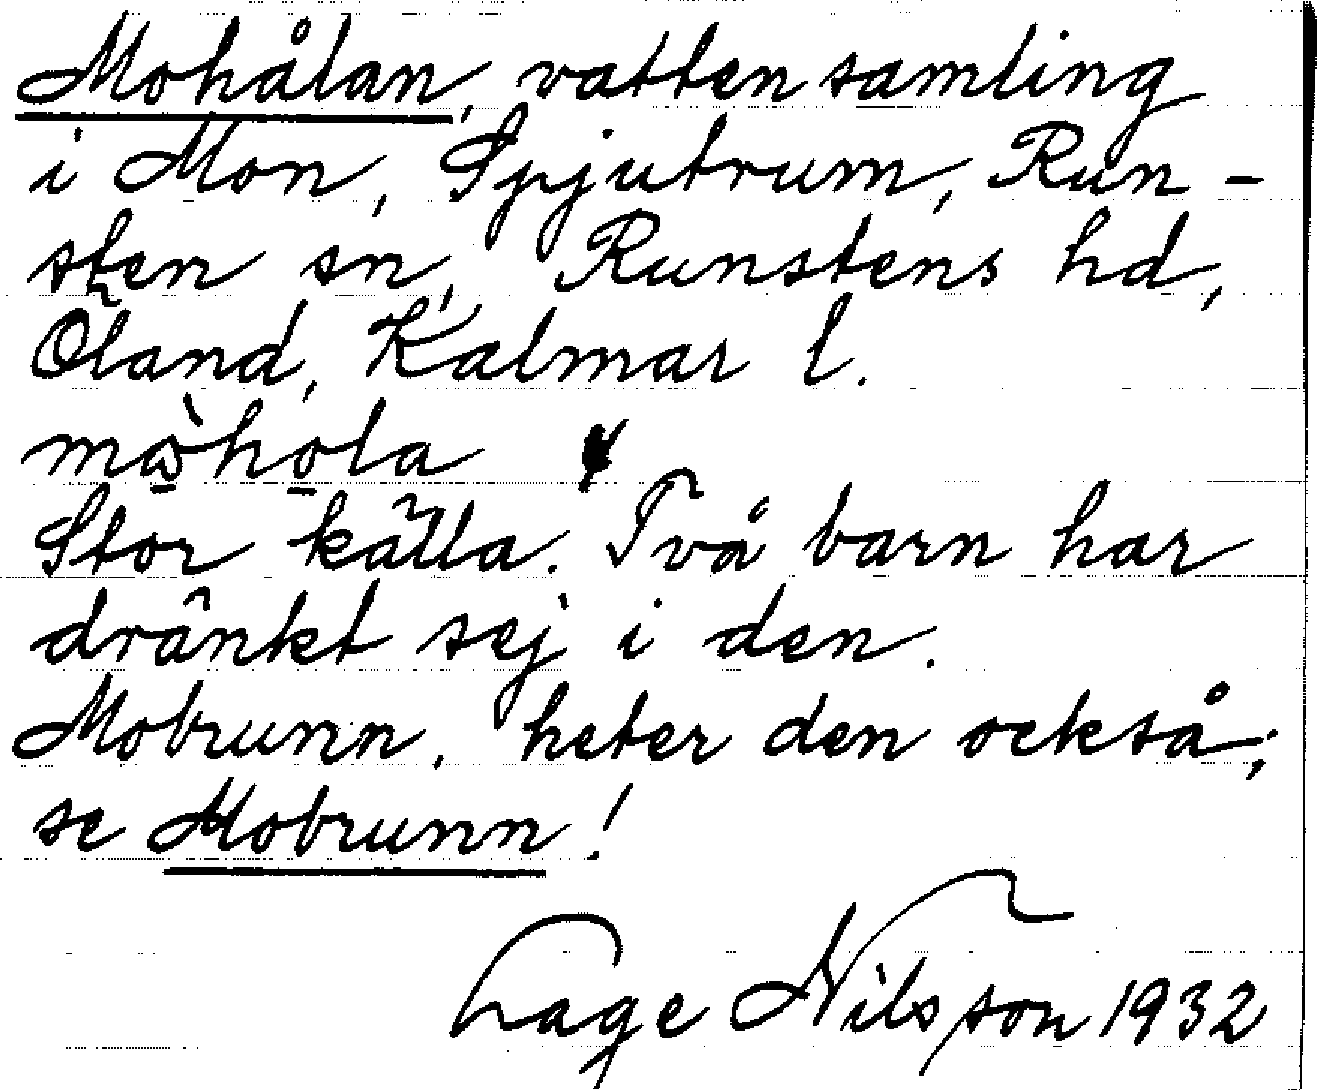 Mohålan, vattensamling
i Mon, Spjutrum, Run-
sten sn, Runstens hd,
Öland, Kalmar l.
Stor källa. Två barn har
dränkt sej i den.
Mobrunn, heter den också;
se Mobrunn!
Tage Nilsson 1932